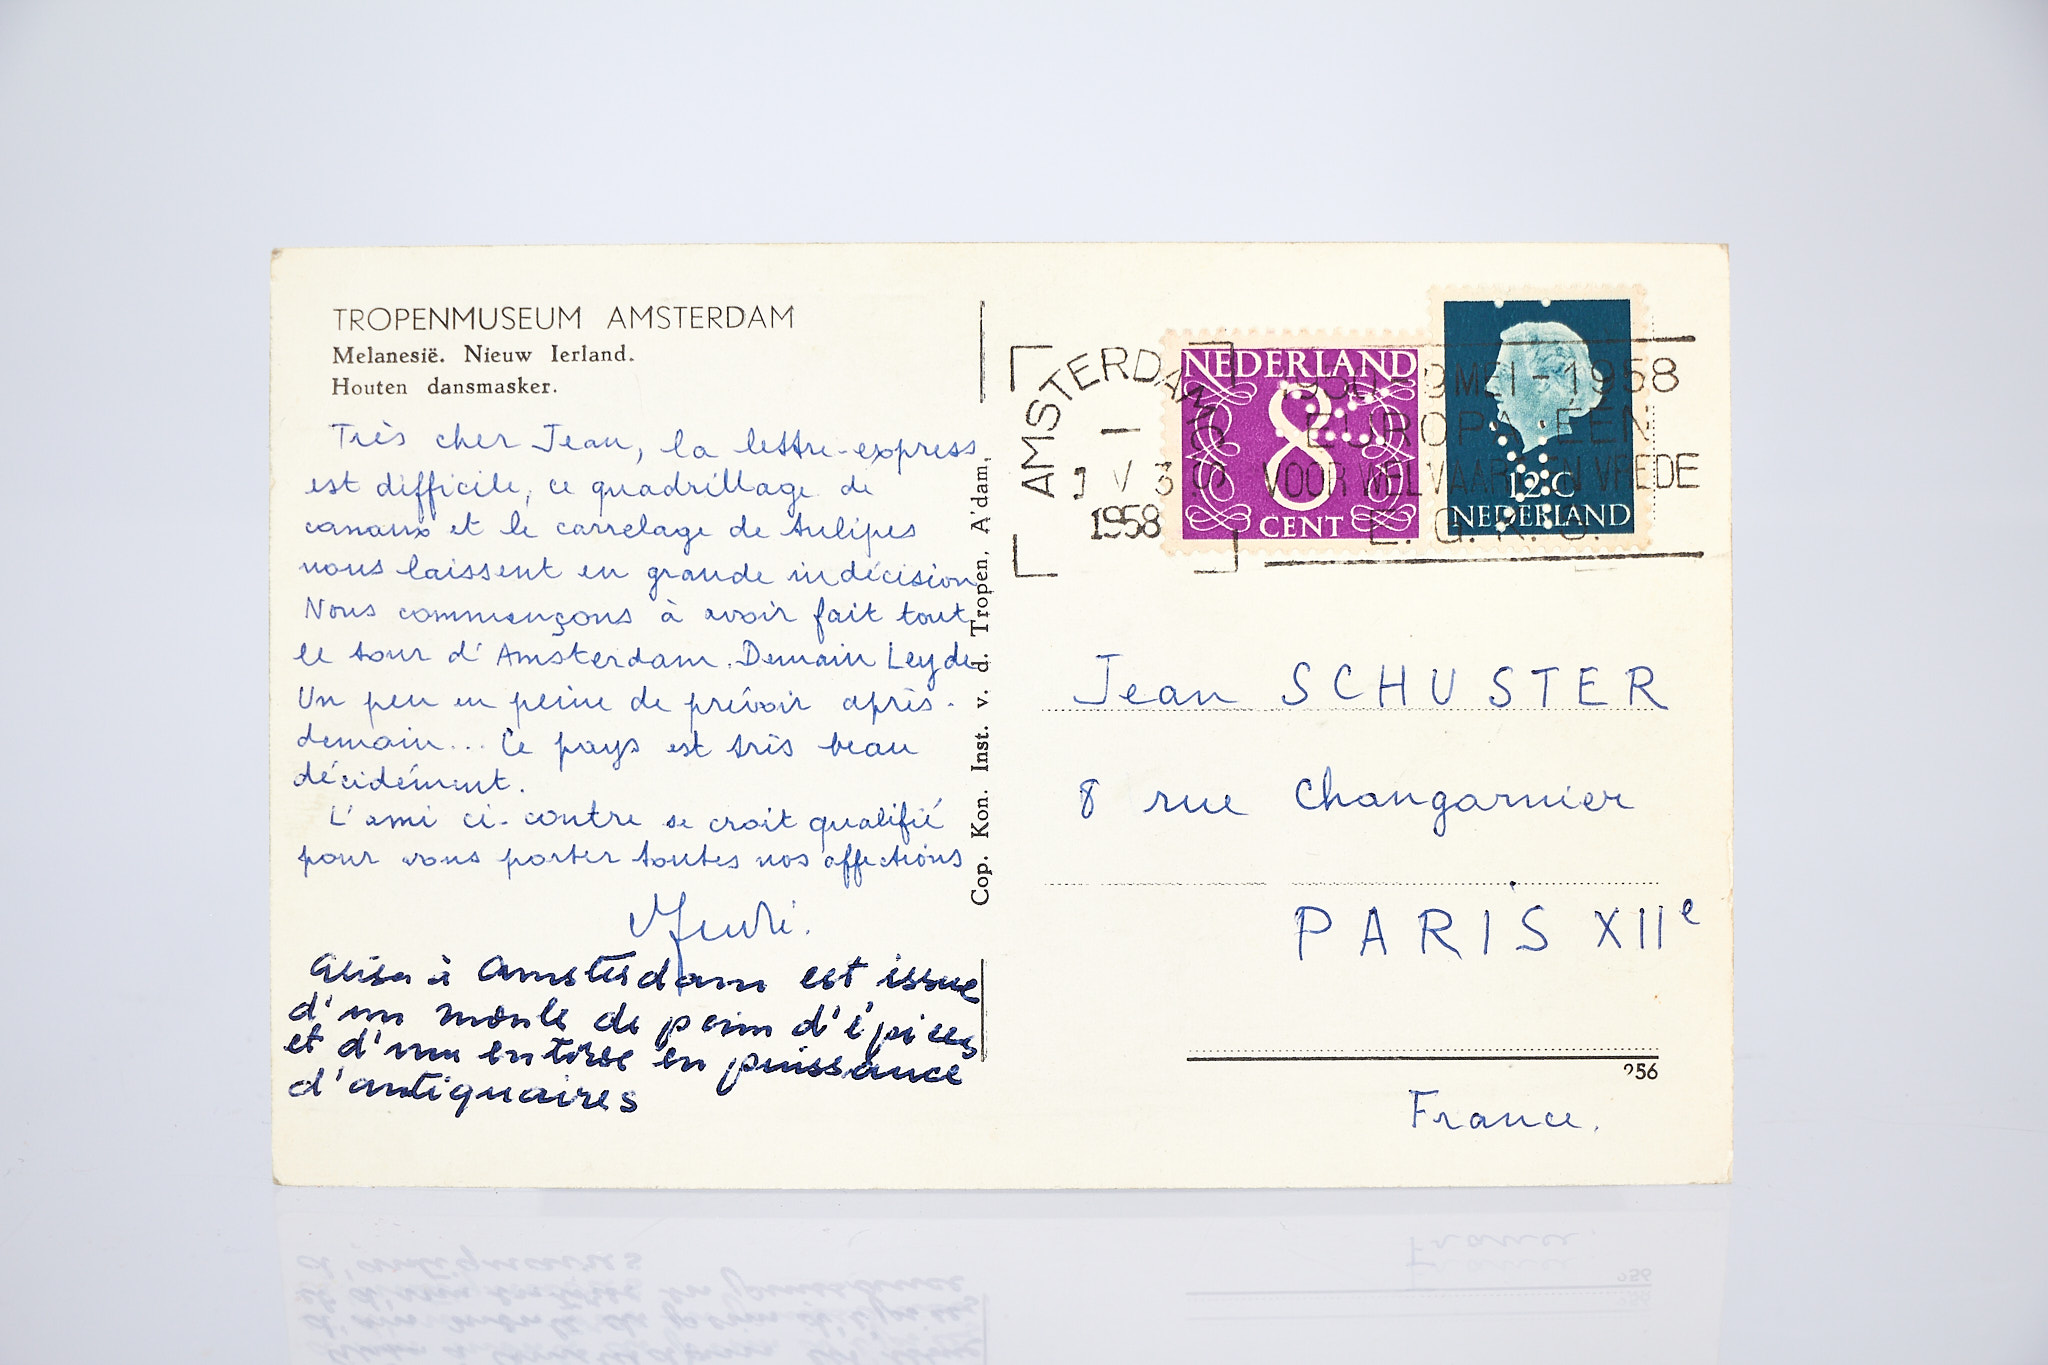 TROPENMUSEUM AMSTERDAM
Melanesië. Nieuw Ierland.
Houten dansmasker.
Très cher Jean, la lettre-express
est difficile, ce quadrillage de
canaux et le carrelage de tulipes
nous laissent en grande indécision
Nous commençons à avoir fait tout
le tour d'Amsterdam. Demain Leyde
Un peu en peine de prévoir après-
demain... Le pays est très beau
décidément.
L'ami ci-contre se croit qualifié
pour vous porter toutes nos affections
André.
Elisa à Amsterdam est issue
d'un moule de pain d'épices
et d'une entorse en puissance
d'antiquaires
Cop. Kon. Inst. v. d. Tropen, A'dam,
AMSTERDAM CS
1 V 3
1958
NEDERLAND
8
CENT
12 C
NEDERLAND
1950-9 MEI-1958
EUROPA ÉÉN
VOOR WELVAART EN VREDE
Jean SCHUSTER
8 rue Changarnier
PARIS XIIe
256
France.